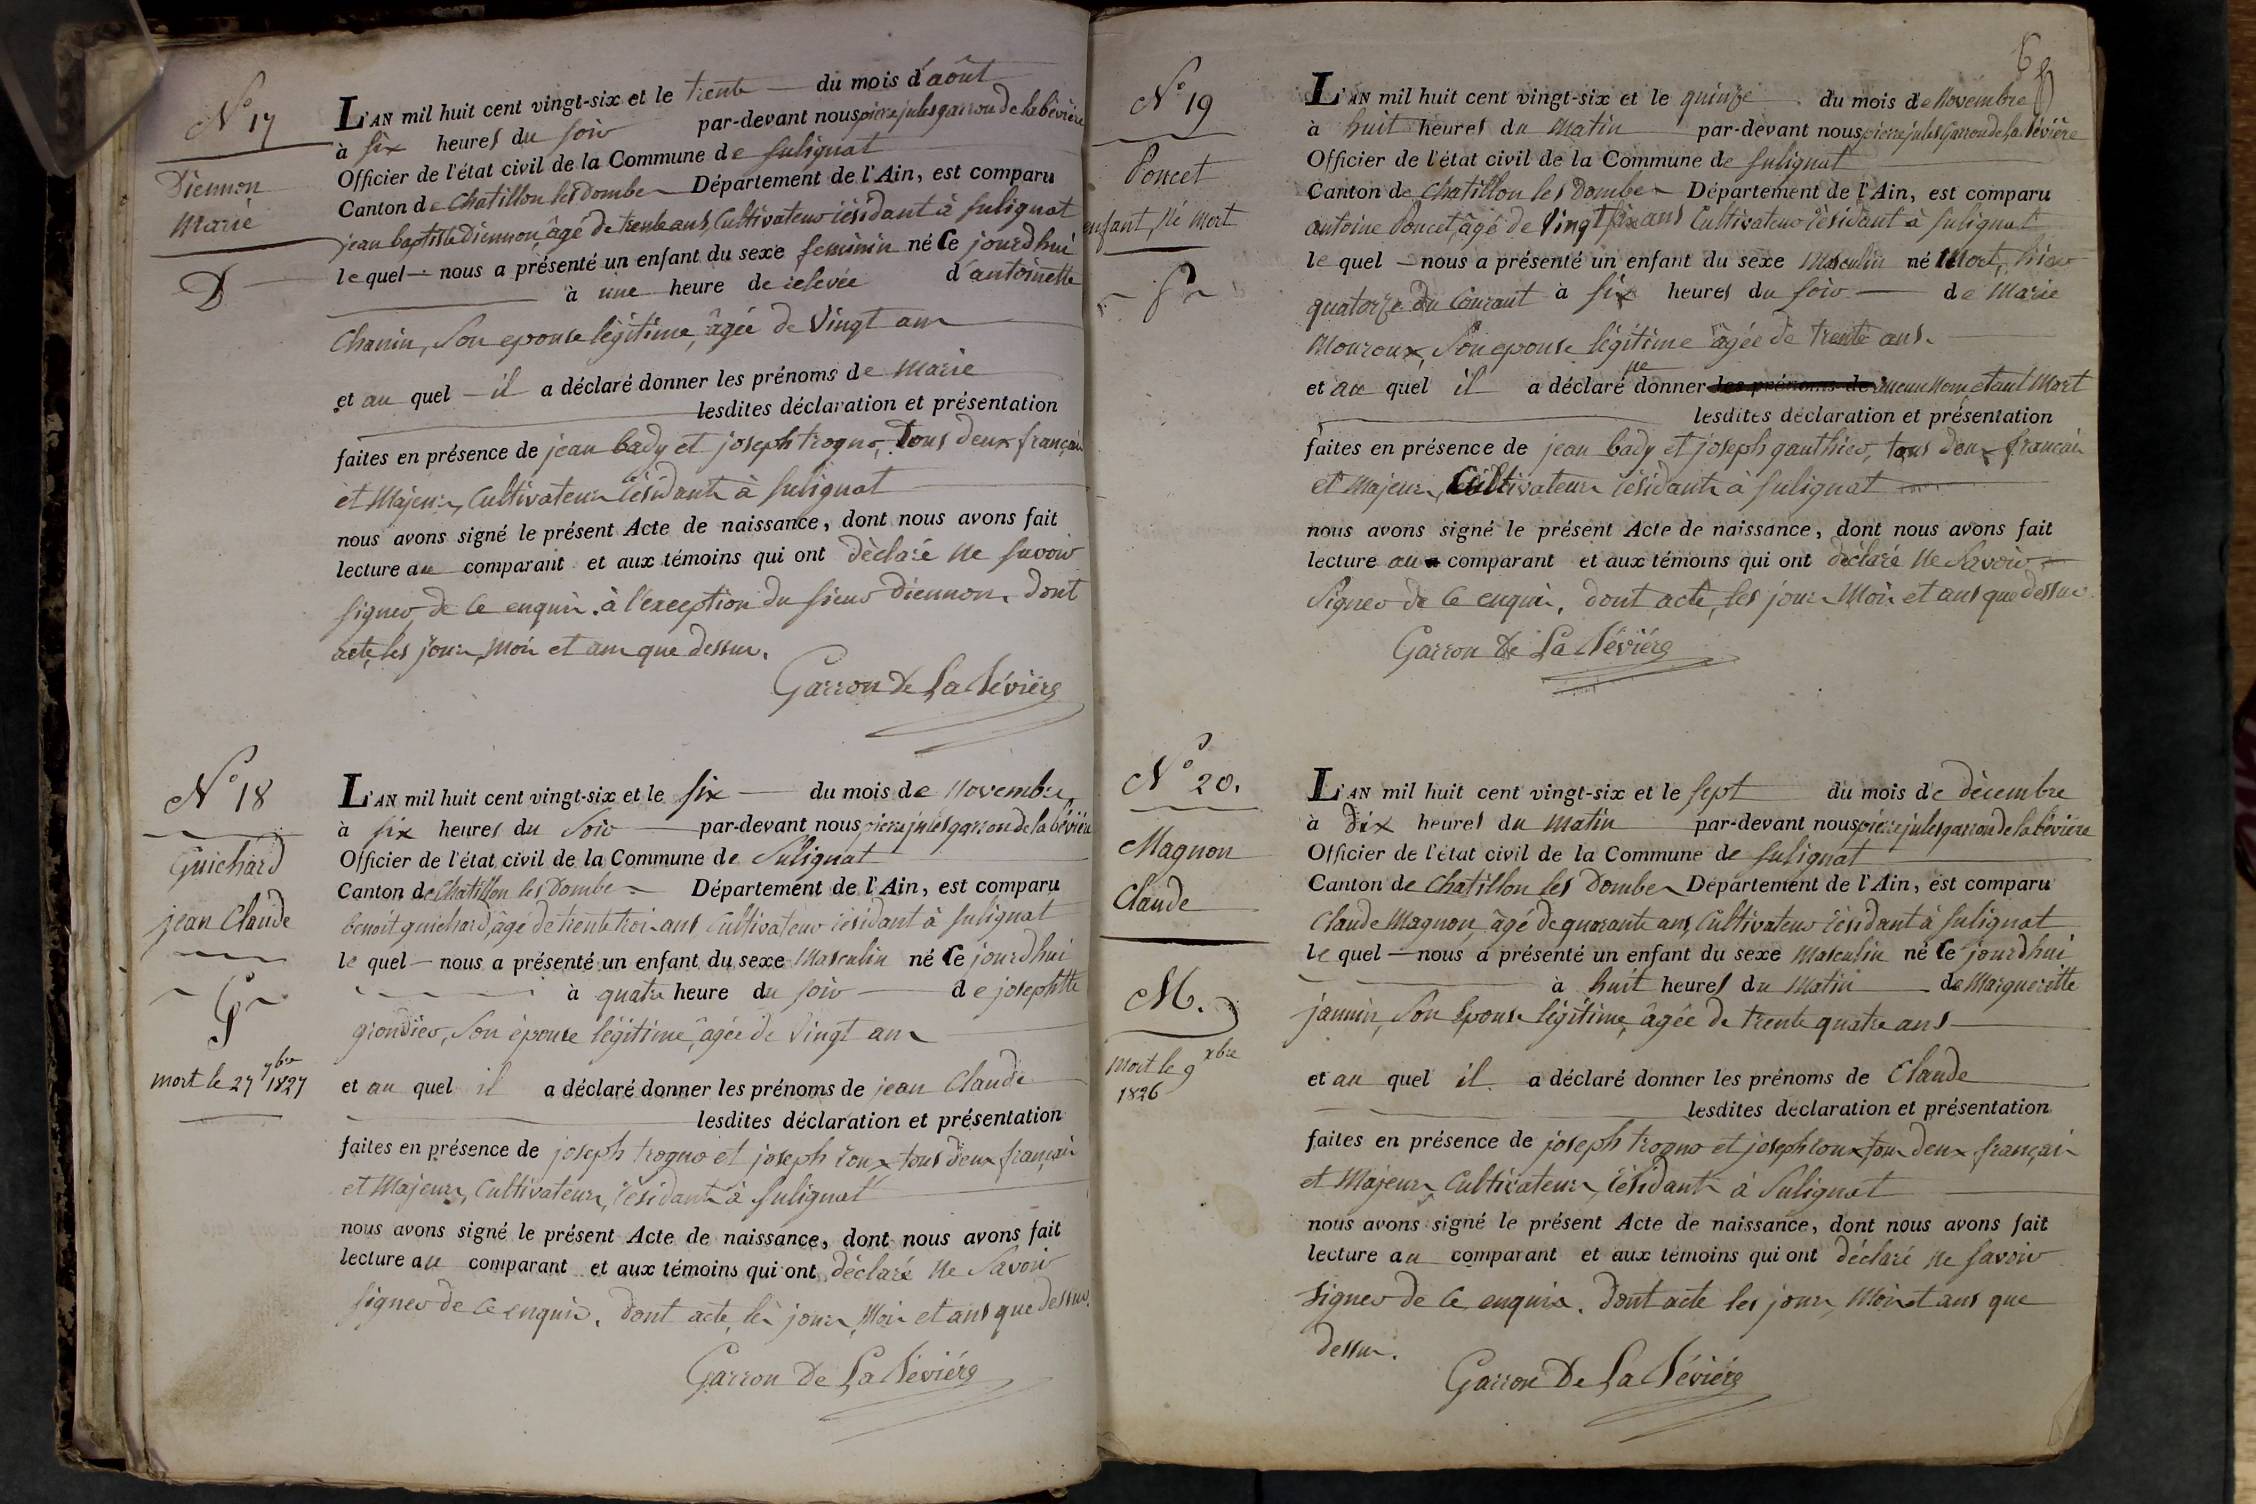 N° 17
Diennon
Marie
D
L'AN mil huit cent vingt-six et le trente du mois d'août
à six heures du soir par-devant nous pierre jules garron de la bévière
Officier de l'état civil de la Commune de sulignat
Canton de Chatillon les Dombes Département de l'Ain, est comparu
jean baptiste Diennon, âgé de trente ans, Cultivateur résidant à sulignat
le quel nous a présenté un enfant du sexe feminin né Ce jourdhui
à une heure de relevée d'antoinette
Chanin, son epouse légitime, âgée de Vingt ans
et au quel il a déclaré donner les prénoms de Marie
lesdites déclaration et présentation
faites en présence de jean bady et joseph trogno, tous deux français
et Majeurs, Cultivateurs résidants à sulignat
nous avons signé le présent Acte de naissance, dont nous avons fait
lecture au comparant et aux témoins qui ont déclaré ne savoir
signer, de ce enquis. à l'exception du sieur Diennon. Dont
acte, les jours, mois et ans que dessus.
Garron De La Bévière
N° 18
Guichard
jean Claude
G
mort le 27 7bre 1827
L'AN mil huit cent vingt-six et le six du mois de Novembre
à six heures du soir par-devant nous pierre jules garron de la bévière
Officier de l'état civil de la Commune de Sulignat
Canton de Chatillon les Dombes Département de l'Ain, est comparu
benoit guichard, âgé de trente trois ans, Cultivateur résidant à sulignat
le quel nous a présenté un enfant du sexe Masculin né Ce jourdhui
à quatre heure du soir de josephtte
grondier, son épouse légitime, âgée de Vingt ans
et au quel il a déclaré donner les prénoms de jean Claude
lesdites déclaration et présentation
faites en présence de joseph trogno et joseph roux tous deux français
et Majeurs, Cultivateurs, résidants à sulignat
nous avons signé le présent Acte de naissance, dont nous avons fait
lecture au comparant et aux témoins qui ont déclaré ne Savoir
signer de ce enquis. Dont acte, les jours, Mois et ans que dessus.
Garron De La Bévière
N° 19
Poncet
enfant, né mort
P
L'AN mil huit cent vingt-six et le quinze du mois de Novembre
à huit heures du Matin par-devant nous pierre jules Garron de la bévière
Officier de l'état civil de la Commune de sulignat
Canton de Chatillon les Dombes Département de l'Ain, est comparu
antoine Poncet, âgé de Vingt six ans Cultivateur résidant à sulignat
le quel nous a présenté un enfant du sexe Masculin né Mort, hier
quatorze du Courant à six heures du soir de Marie
Mouroux, Son epouse légitime âgée de trente ans.
et au quel il a déclaré ne donner les prénoms de aucun Nom étant Mort
lesdites déclaration et présentation
faites en présence de jean bady et joseph gauthier, tous deux français
et Majeurs, Cultivateurs résidants à sulignat
nous avons signé le présent Acte de naissance, dont nous avons fait
lecture au comparant et aux témoins qui ont déclaré ne Savoir
Signer de ce enquis. Dont acte, les jours Mois et ans que dessus.
Garron De La Bévière
N° 20.
Magnon
Claude
M.
Mort le 9 xbre
1826
L'AN mil huit cent vingt-six et le sept du mois de décembre
à Dix heures du Matin par-devant nous pierre jules garron de la bévière
Officier de l'état civil de la Commune de sulignat
Canton de Chatillon les Dombes Département de l'Ain, est comparu
Claude Magnon, âgé de quarante ans, Cultivateur résidant à sulignat
le quel nous a présenté un enfant du sexe Masculin né Ce jourdhui
à huit heures du Matin de Margueritte
jannin, Son Epouse légitime, âgée de trente quatre ans
et au quel il a déclaré donner les prénoms de Claude
lesdites déclaration et présentation
faites en présence de joseph trogno et joseph roux, tous deux français
et Majeurs, Cultivateurs, résidants à Sulignat
nous avons signé le présent Acte de naissance, dont nous avons fait
lecture au comparant et aux témoins qui ont déclaré ne savoir
signer de ce enquis. Dont acte les jours, Mois et ans que
dessus.
Garron De La Bévière